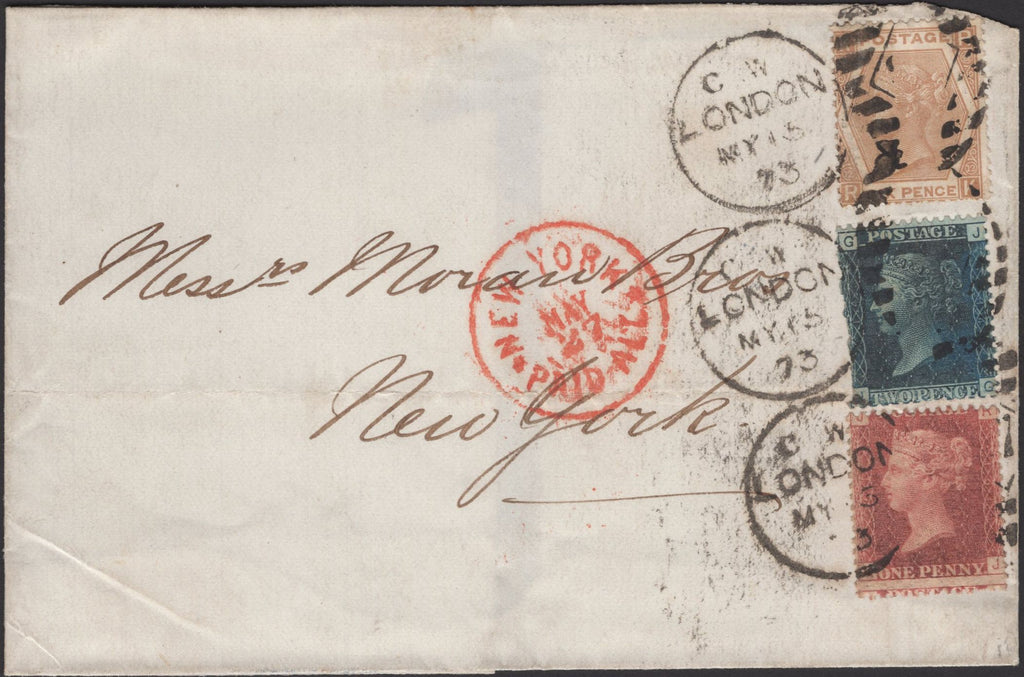 C W
LONDON
MY 15
73
POSTAGE
R
PENCE
K
C W
LONDON
MY 15
73
G POSTAGE J
TWOPENCE G
C W
LONDON
MY
3
ONE PENNY J
POSTAGE
Messrs Moran Bros
New York
NEW YORK
MAY
27
PAID ALL